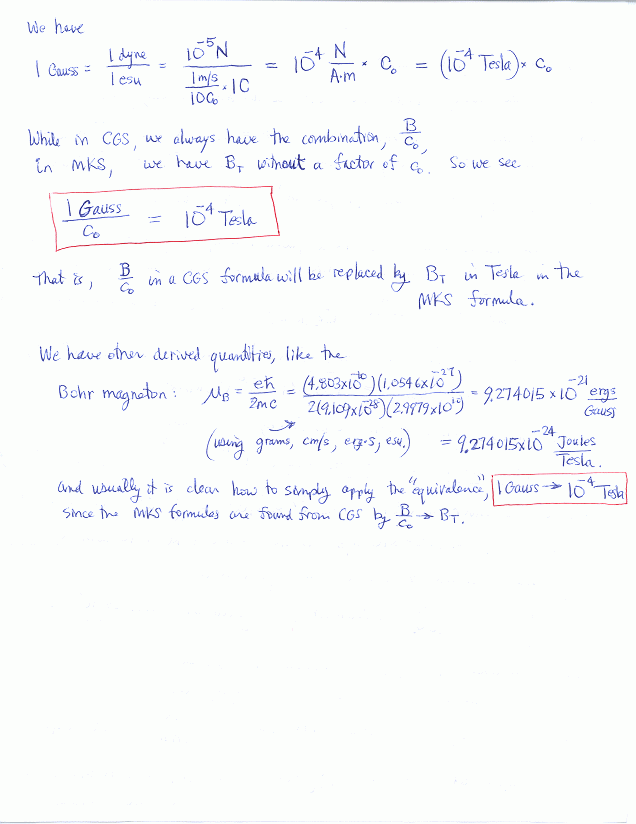 We have
1 Gauss = 1 dyne / 1 esu = 10^-5 N / (1 m/s / 10C₀ · 1C) = 10^-4 N / A·m × C₀ = (10^-4 Tesla) × C₀
While in CGS, we always have the combination, B/C₀,
in MKS, we have B_T without a factor of C₀. So we see
1 Gauss / C₀ = 10^-4 Tesla
That is, B/C₀ in a CGS formula will be replaced by B_T in Tesla in the
MKS formula.
We have other derived quantities, like the
Bohr magneton: μ_B = eħ / 2mc = (4.803×10^-10)(1.0546×10^-27) / 2(9.109×10^-28)(2.9979×10^10) = 9.274015 × 10^-21 ergs / Gauss
(using grams, cm/s, erg·s, esu.) = 9.274015×10^-24 Joules / Tesla.
and usually it is clear how to simply apply the "equivalence", 1 Gauss → 10^-4 Tesla
since the MKS formulas are found from CGS by B/C₀ → B_T.